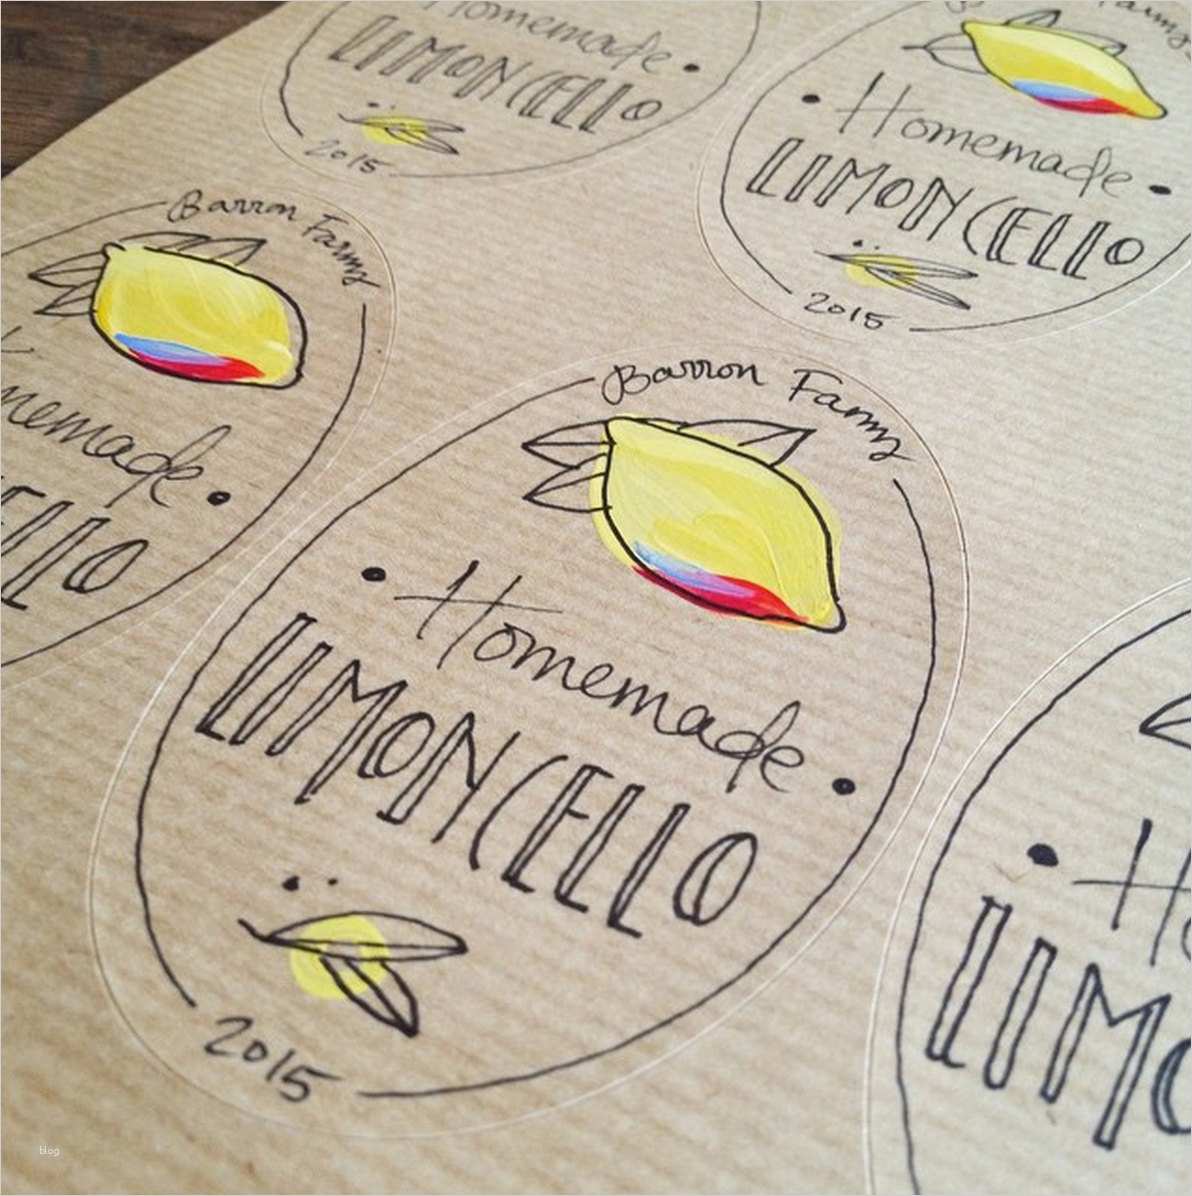 Homemade
LIMONCELLO
2015
Farms
Homemade
LIMONCELLO
2015
Barron Farms
memade
ELLO
Barron Farms
Homemade
LIMONCELLO
2015
Ho
LIMO
blog